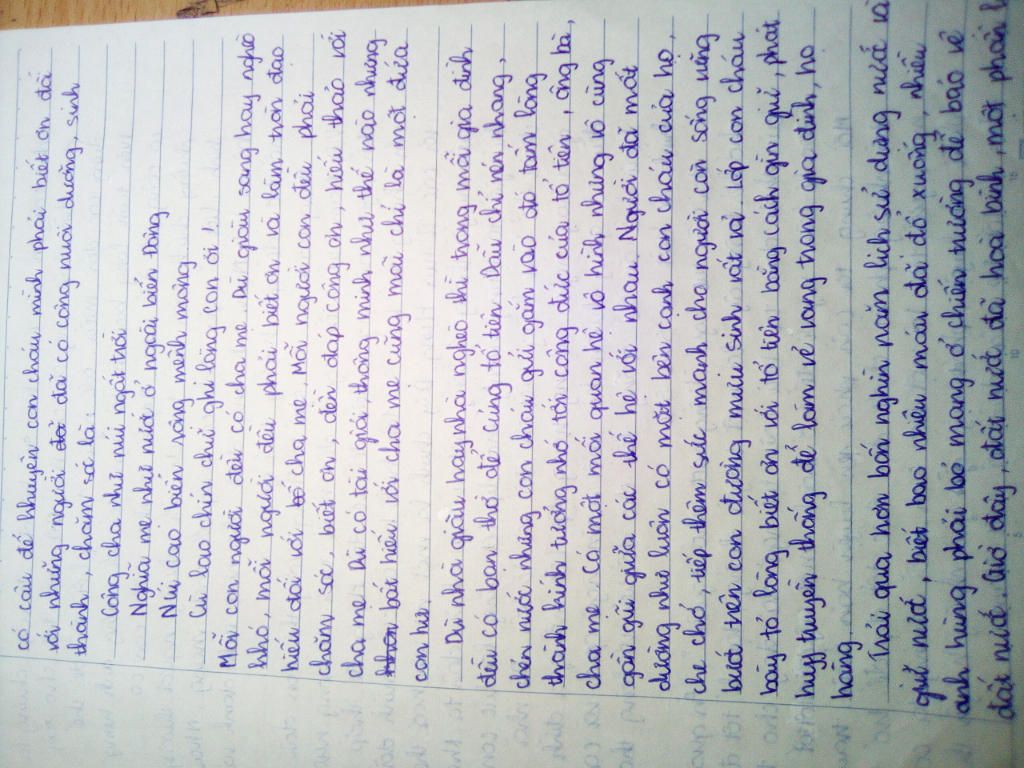 có câu để khuyên con cháu mình phải biết ơn đối
với những người đã có công nuôi dưỡng, sinh
thành, chăm sóc là:
Công cha như núi ngất trời
Nghĩa mẹ như nước ở ngoài biển Đông
Núi cao biển rộng mênh mông
Cù lao chín chữ ghi lòng con ơi!
Mỗi con người đều có cha mẹ. Dù giàu sang hay nghèo
khó, mỗi người đều phải biết ơn và làm tròn đạo
hiếu đối với cha mẹ. Mỗi người con đều phải
chăm sóc, biết ơn, đền đáp công ơn, hiếu thảo với
cha mẹ. Dù có tài giỏi, thông minh như thế nào nhưng
bất hiếu với cha mẹ cũng mãi chỉ là một đứa
con hư.
Dù nhà giàu hay nhà nghèo thì trong mỗi gia đình
đều có ban thờ để cúng tổ tiên. Dẫu chỉ nén nhang,
chén nước nhưng con cháu gửi gắm vào đó tấm lòng
thành kính tưởng nhớ tới công đức của tổ tiên, ông bà,
cha mẹ. Có một mối quan hệ vô hình nhưng vô cùng
gần gũi giữa các thế hệ với nhau. Người đã mất
dường như luôn có mặt bên cạnh con cháu của họ,
che chở, tiếp thêm sức mạnh cho người còn sống vững
bước trên con đường mưu sinh vất vả. Lớp con cháu
bày tỏ lòng biết ơn với tổ tiên bằng cách gìn giữ, phát
huy truyền thống để làm vẻ vang trong gia đình, họ
hàng.
Trải qua hơn bốn nghìn năm lịch sử dựng nước và
giữ nước, biết bao nhiêu máu đã đổ xuống, nhiều
anh hùng phải bỏ mạng ở chiến trường để bảo vệ
đất nước. Giờ đây, đất nước đã hoà bình, một phần